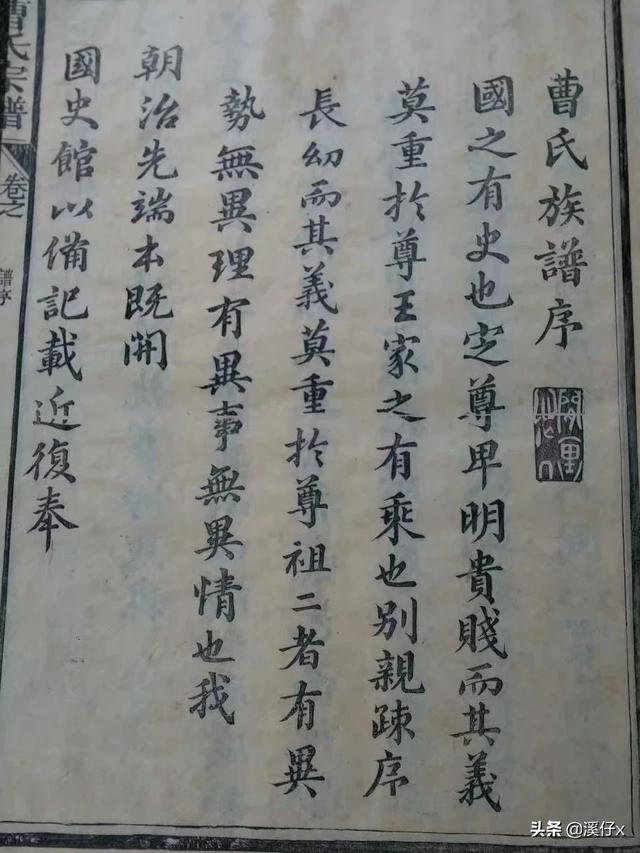 曹氏族譜序
國之有史也定尊卑明貴賤而其義
莫重於尊王家之有乘也別親踈序
長幼而其義莫重於尊祖二者有異
勢無異理有異事無異情也我
朝治先端本既開
國史館以備記載近復奉
曹氏宗譜
卷之
譜序
头条 @溪仔x